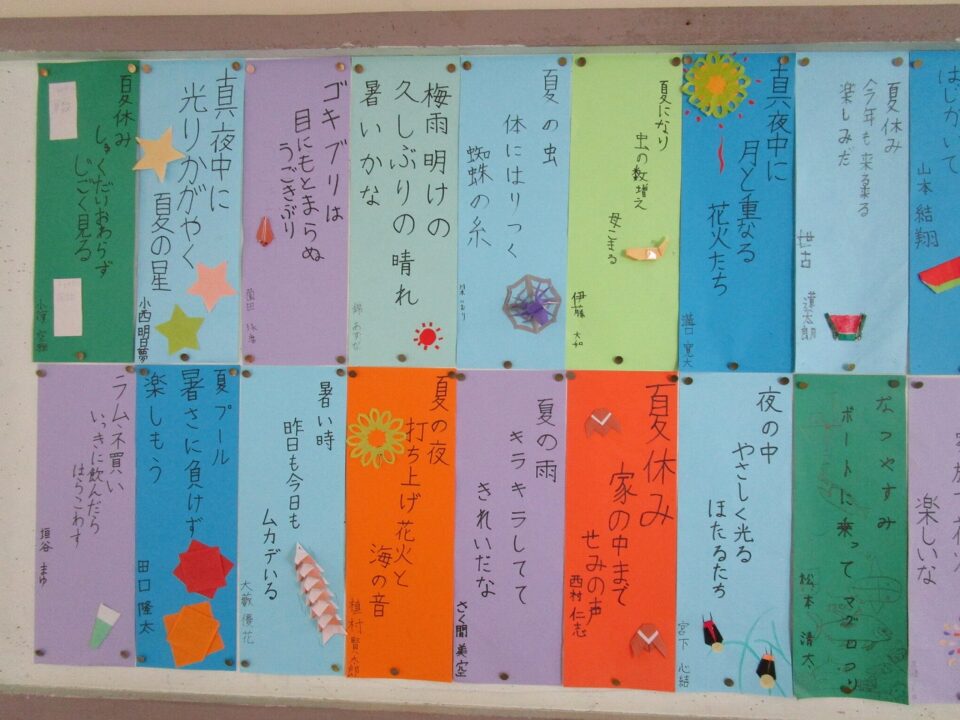 はじかいて
山本 結翔
夏休み
今年も来る来る
楽しみだ
真夜中に
月と重なる
花火たち
溝口 寛大
夏になり
虫の数増え
母こまる
伊藤 大和
夏の虫
体にはりつく
蜘蛛の糸
梅雨明けの
久しぶりの晴れ
暑いかな
ゴキブリは
目にもとまらぬ
うごきぶり
真夜中に
光りかがやく
夏の星
小西 明日夢
夏休み
しゅくだいおわらず
じごく見る
楽しいな
なつやすみ
ボートに乗って
マグロつり
松本 清太
夜の中
やさしく光る
ほたるたち
宮下 心結
夏休み
家の中まで
せみの声
西村 仁志
夏の雨
キラキラしてて
きれいだな
さく間 美空
夏の夜
打ち上げ花火と
海の音
植村 賢太郎
暑い時
昨日も今日も
ムカデいる
大藪 優花
夏プール
暑さに負けず
楽しもう
田口 隆太
ラムネ買い
いっきに飲んだら
はらこわす
垣谷 まゆ